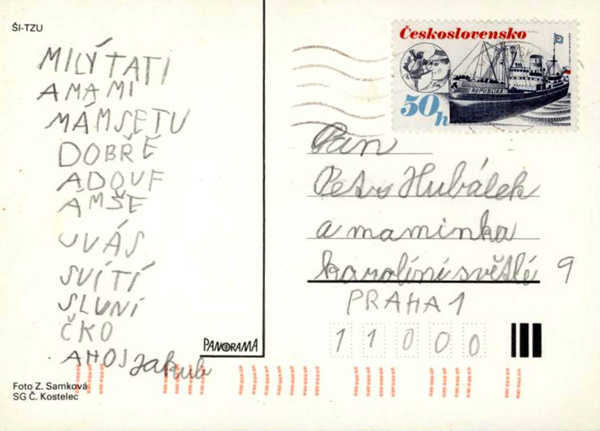 ŠI-TZU
MILÝ TATI
A MAMI
MÁM SE TU
DOBŘE
A DOUF
AMŠE
U VÁS
SVÍTÍ
SLUNÍ
ČKO
AHOJ Jakub
Foto Z. Samková
SG Č. Kostelec
PANORAMA
Československo
REPUBLIKA
50h
Pan
Petr Hubálek
a maminka
karolíni světlé 9
PRAHA 1
11000